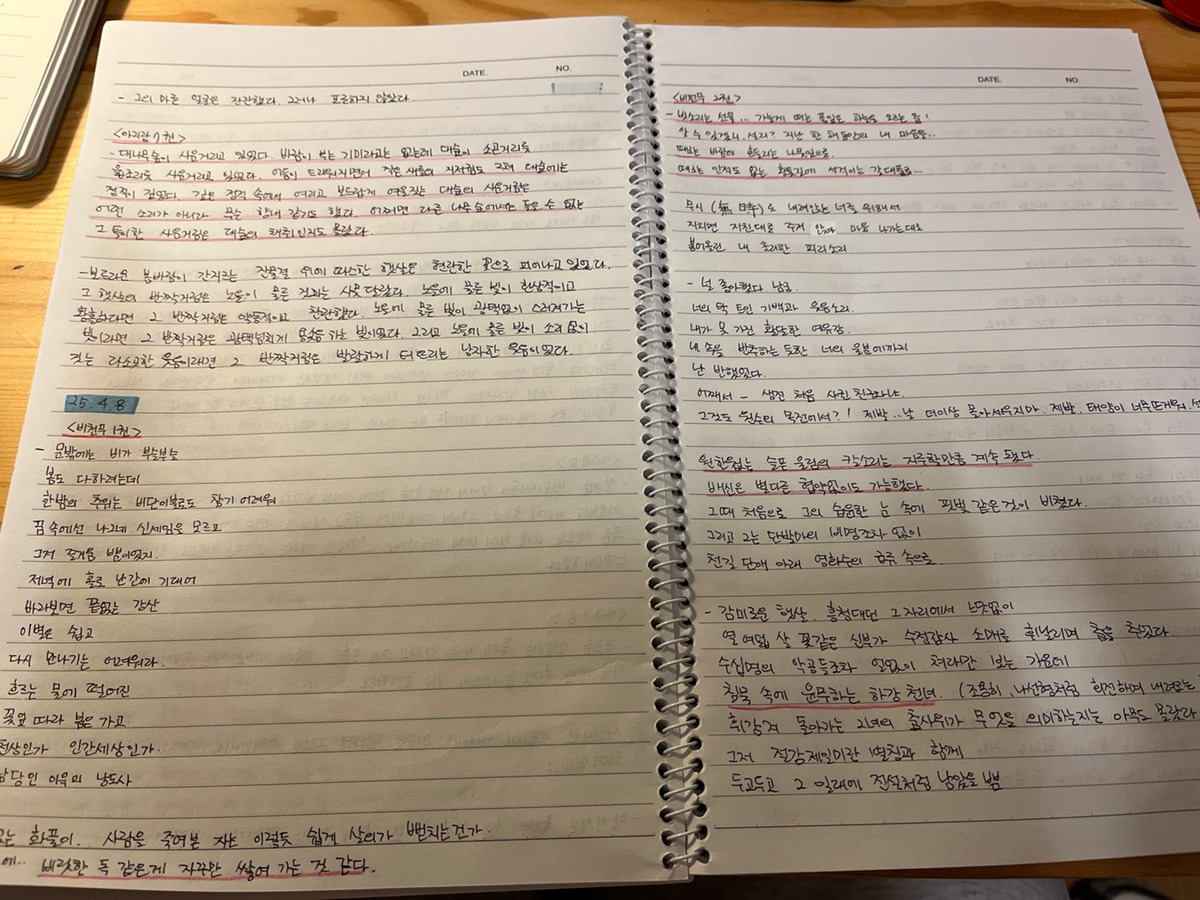 DATE. NO.
- 그의 마른 얼굴은 잔잔했다. 그러나 포근하지 않았다.
<아리랑 7권>
- 대나무숲이 사운거리고 있었다. 바람이 부는 기미라고는 없는데 대숲이 소곤거리듯
읊조리듯 사운거리고 있었다. 어둠이 드리워지면서 작은 새들의 지저귐도 그쳐 대숲에는
정적이 깊었다. 깊은 정적 속에서 여리고 보드랍게 여울지는 대숲의 사운거림은
어떤 소리가 아니라 무슨 향내 같기도 했다. 어쩌면 다른 나무숲에서는 들을 수 없는
그 특이한 사운거림은 대숲의 체취인지도 몰랐다.
- 보드라운 봄바람이 간지르는 잔물결 위에 따스한 햇살은 현란한 꽃으로 피어나고 있었다.
그 햇살의 반짝거림은 노을이 물든 것과는 사뭇 달랐다. 노을에 물든 빛이 환상적이고
황홀하다면 그 반짝거림은 약동적이고 찬란했다. 노을에 물든 빛이 광택없이 스러져가는
빛이라면 그 반짝거림은 광택넘치게 용솟음 하는 빛이었다. 그리고 노을에 물든 빛이 소리 없이
짓는 다소곳한 웃음이라면 그 반짝거림은 발랄하게 터뜨리는 낭자한 웃음이었다.
25.4.8
<비천무 1권>
- 문밖에는 비가 부슬부슬
봄도 다하려는데
한밤의 추위는 비단이불로도 참기 어려워
꿈 속에선 나그네 신세임을 모르고
그저 즐거움 뿐이었지.
저녁에 홀로 난간에 기대어
바라보면 끝없는 강산
이별은 쉽고
다시 만나기는 어려워라.
흐르는 물에 떨어진
꽃잎 따라 봄은 가고
천상인가 인간세상인가.
남당인 이욱의 낭도사
화풀이. 사람을 죽여본 자는 이렇듯 쉽게 살의가 뻗치는건가.
에.. 비릿한 독 같은게 자꾸만 쌓여 가는 것 같다.
DATE. NO.
<비천무 2권>
- 빗소리는 선율... 가늘게 떠는 풀잎은 하늘을 오르는 꿈!
알 수 있겠니, 설리? 지난 한 해동안의 내 마음을..
때로는 바람에 흔들리는 나뭇잎으로.
때로는 인적도 없는 황톳길에 서걱이는 갈대풀로...
무시(無時)로 내려앉는 너를 위해서
지치면 지친대로 주저 앉아 마음 나가는대로
불어올린 내 초라한 피리소리
- 널 좋아했다. 남궁.
너의 탁 트인 기백과 웃음소리.
내가 못 가진 활달한 여유감.
내 속을 반추하는 듯한 너의 울분에까지
난 반했었다.
어째서 - 생전 처음 사귄 친구와 나.
그것도 원수의 목전에서?! 제발.. 날 더이상 몰아세우지마. 제발. 태양이 너무 뜨거워.
원한없는 슬픈 울림의 칼소리는 지루할만큼 계속 됐다.
배신은 별다른 협약없이도 가능했다.
그때 처음으로 그의 습윤한 눈 속에 핏빛 같은 것이 비쳤다.
그리고 그는 단발마의 비명조차 없이
천길 단애 아래 영하수의 급류 속으로.
- 감미로운 햇살. 흥청대던 그 자리에서 느닷없이
열 여덟 살 꽃같은 신부가 수정감사 소매를 휘날리며 춤을 추었다.
수십명의 악공들조차 일없이 쳐다만 보는 가운데
침묵 속에 윤무하는 하강 천녀. (조용히, 나선형처럼 회전하며 내려오는
휘감겨 돌아가는 그녀의 춤사위가 무엇을 의미하는지는 아무도 몰랐다
그저 절강제일미란 별칭과 함께
두고두고 그 일대에 전설처럼 남았을 뿐